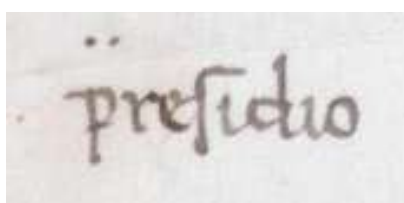 p̈reſidio